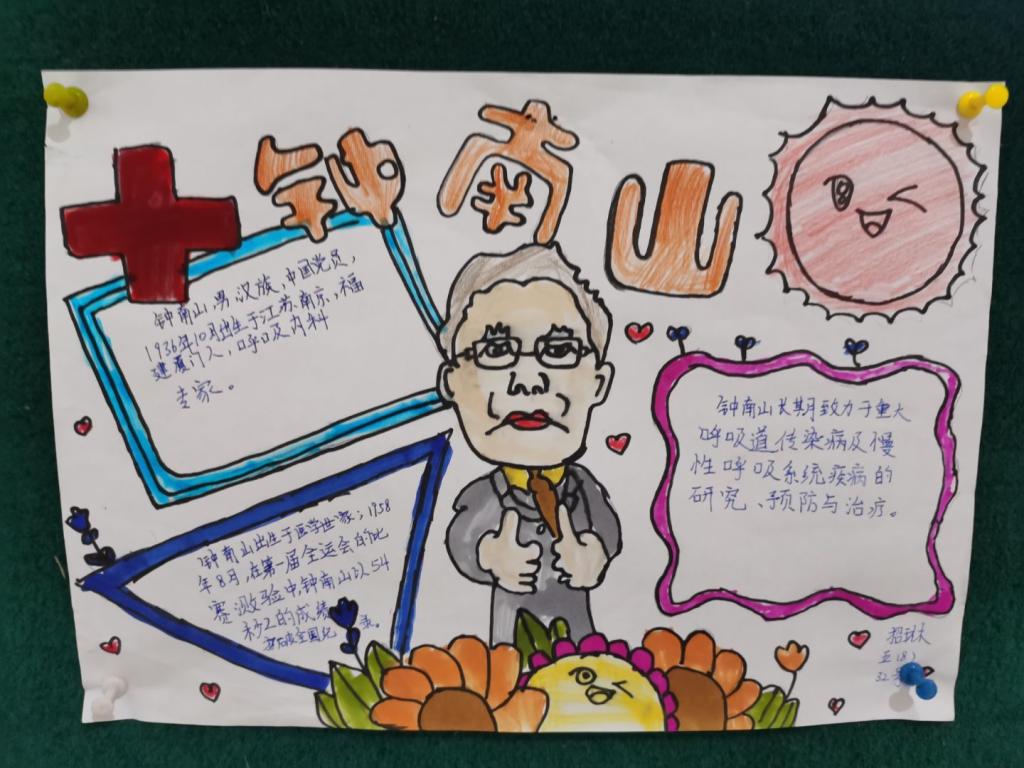 钟南山
钟南山,男,汉族,中国党员,
1936年10月出生于江苏南京,福
建厦门人,呼吸内科
专家。
钟南山出生于医学世家;1958
年8月,在第一届全运会的比
赛测验中,钟南山以54
秒2的成绩
打破全国纪录。
钟南山长期致力于重大
呼吸道传染病及慢
性呼吸系统疾病的
研究、预防与治疗。
五(8)
32号